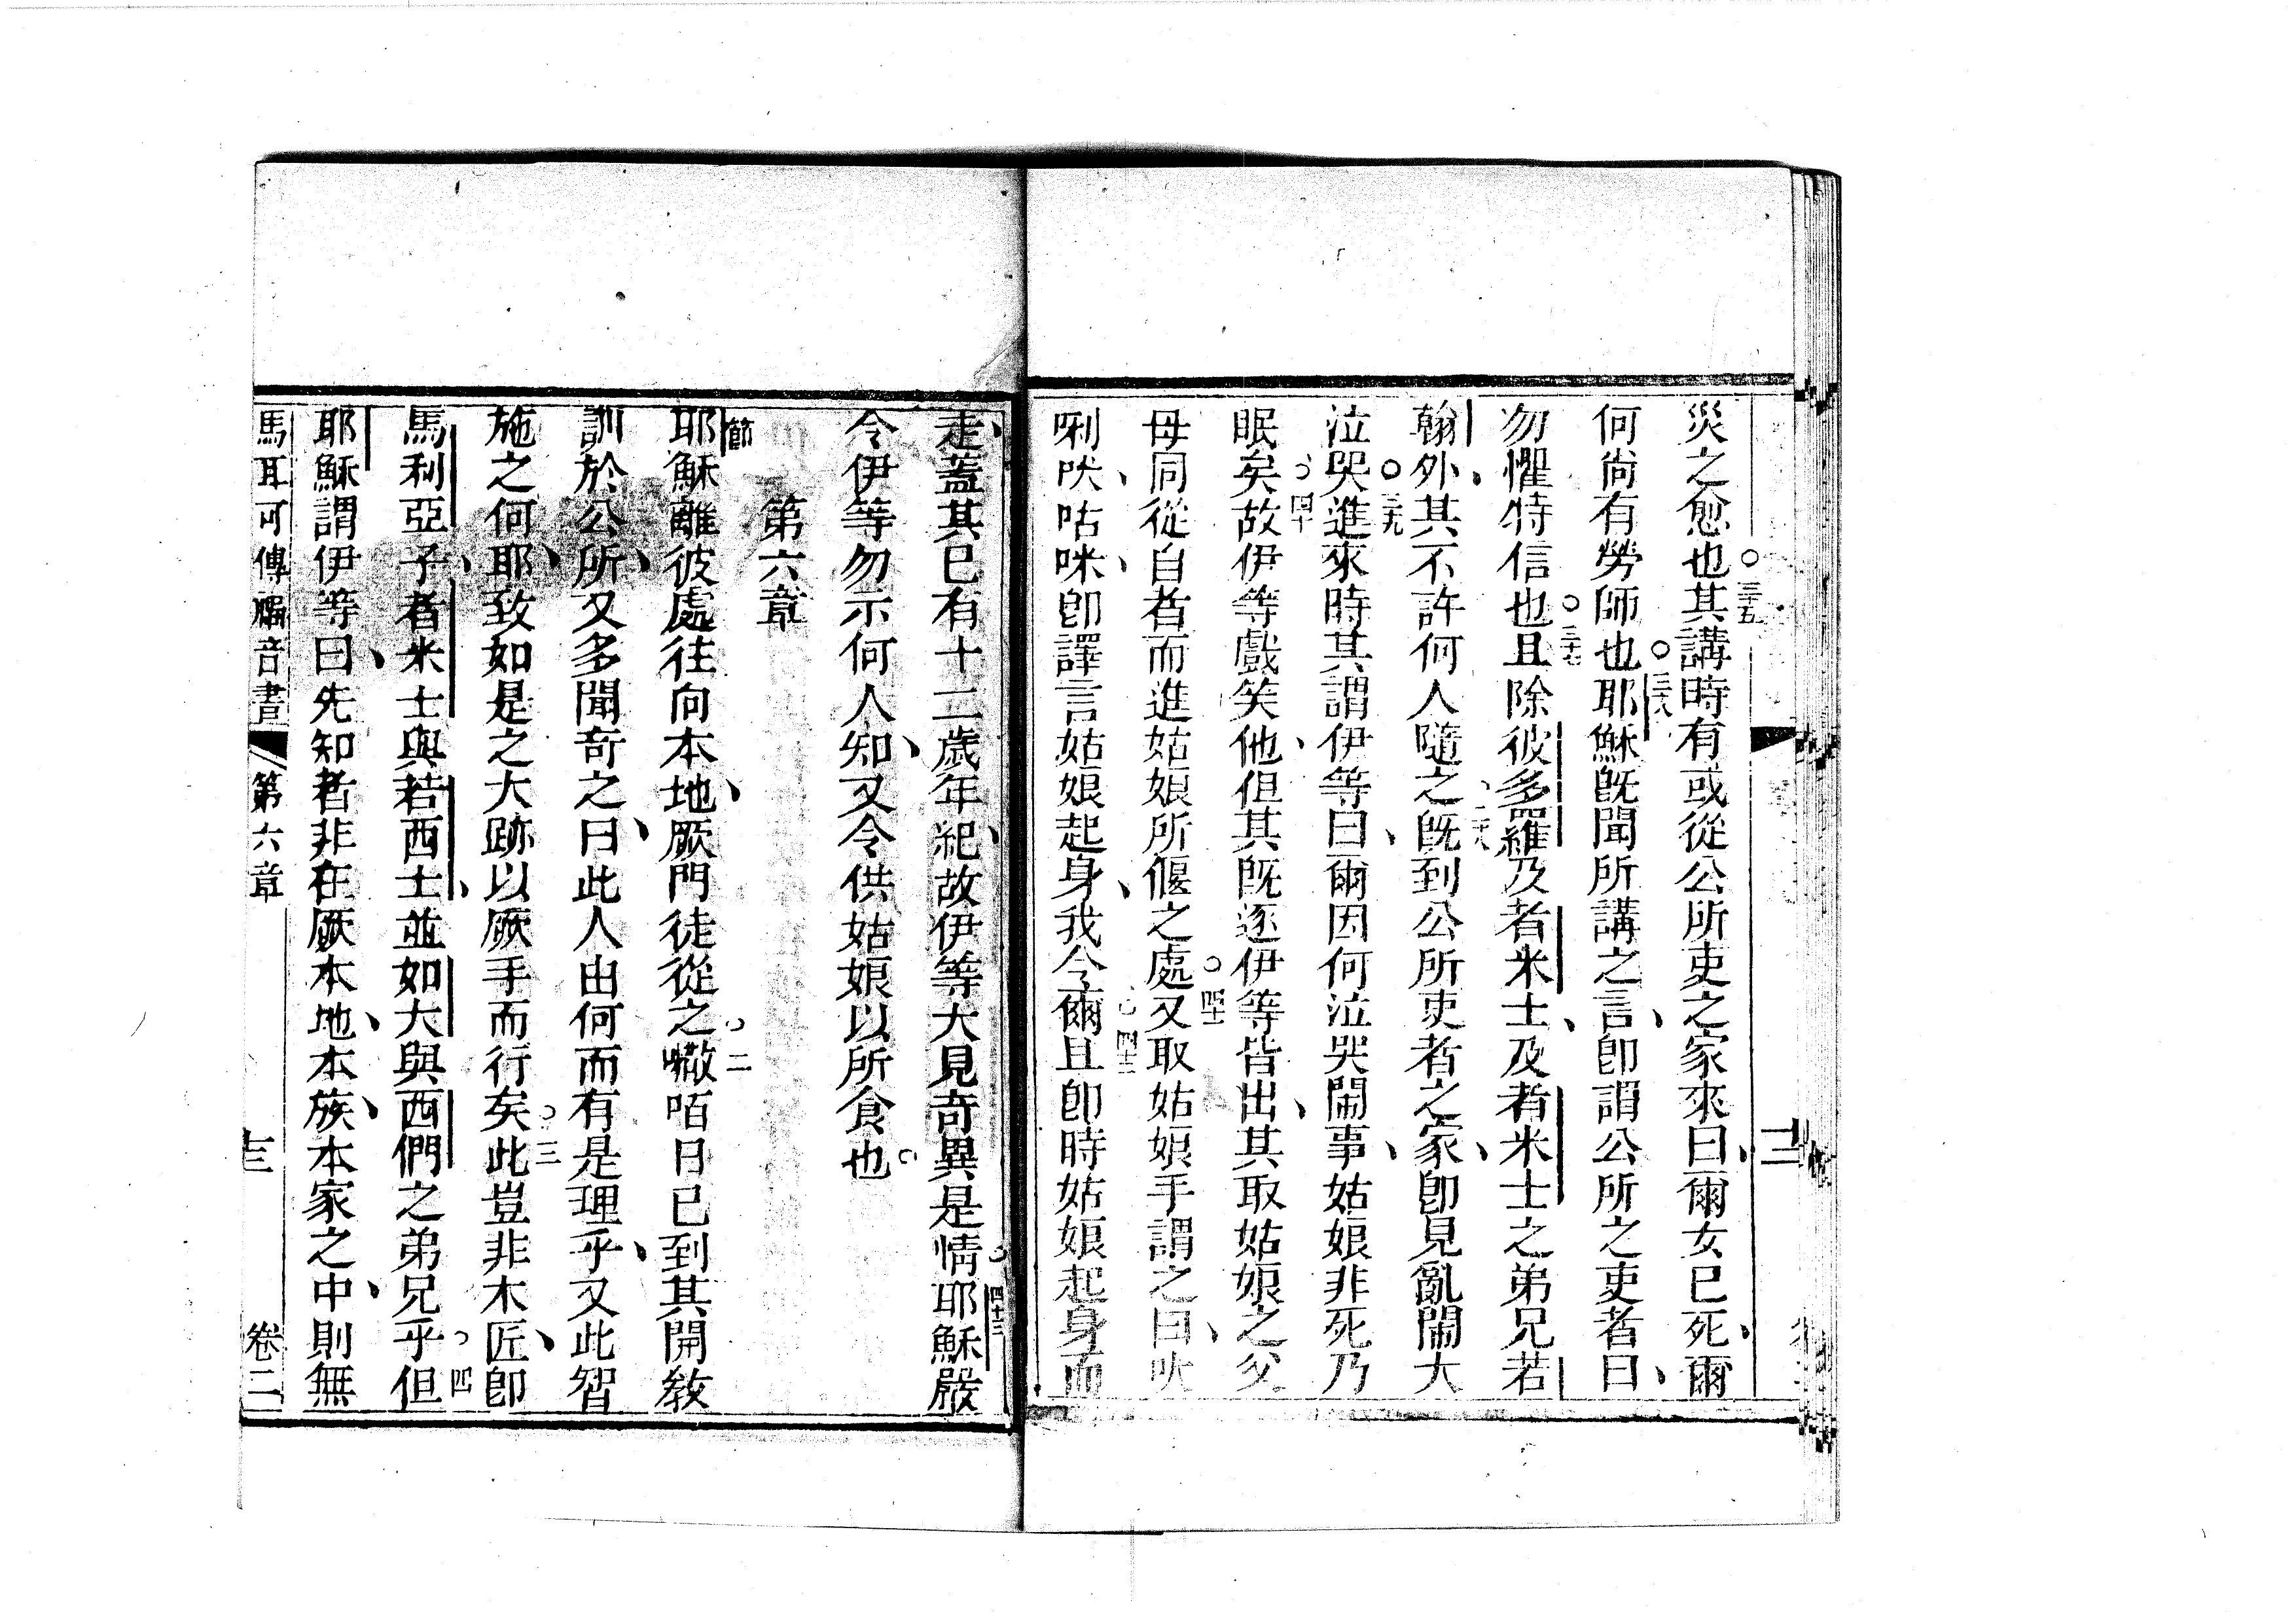 災之愈也○三十五其講時有或從公所吏之家來曰、爾女已死、爾
何尚有勞師也○三十六耶穌旣聞所講之言、卽謂公所之吏者曰、
勿懼特信也○三十七且除彼多羅及者米士、及者米士之弟兄若
翰、外其不許何人隨之、旣到公所吏者之家、卽見亂鬧大
泣哭○三十九進來時其謂伊等曰、爾因何泣哭鬧事、姑娘非死乃
眠矣○四十故伊等戲笑他、但其旣逐伊等皆出、其取姑娘之父
母同從自者而進姑娘所偃之處○四十一又取姑娘手謂之曰、吠
唎吠、咕咪、卽譯言姑娘起身、我令爾○四十二且卽時姑娘起身而
走、蓋其已有十二歲年紀、故伊等大見奇異是情○四十三耶穌嚴
令伊等勿示何人知、又令供姑娘以所食也○
第六章
節耶穌離彼處往向本地、厥門徒從之○二𠹌咟日已到其開敎
訓於公所、又多聞奇之、曰此人由何而有是理乎、又此智
施之何耶、致如是之大跡以厥手而行矣○三此豈非木匠、卽
馬利亞子、者米士與若西士、並如大與西們之弟兄乎○四但
耶穌謂伊等曰、先知者非在厥本地、本族、本家之中、則無
馬耳可傳福音書 第六章 十三 卷二